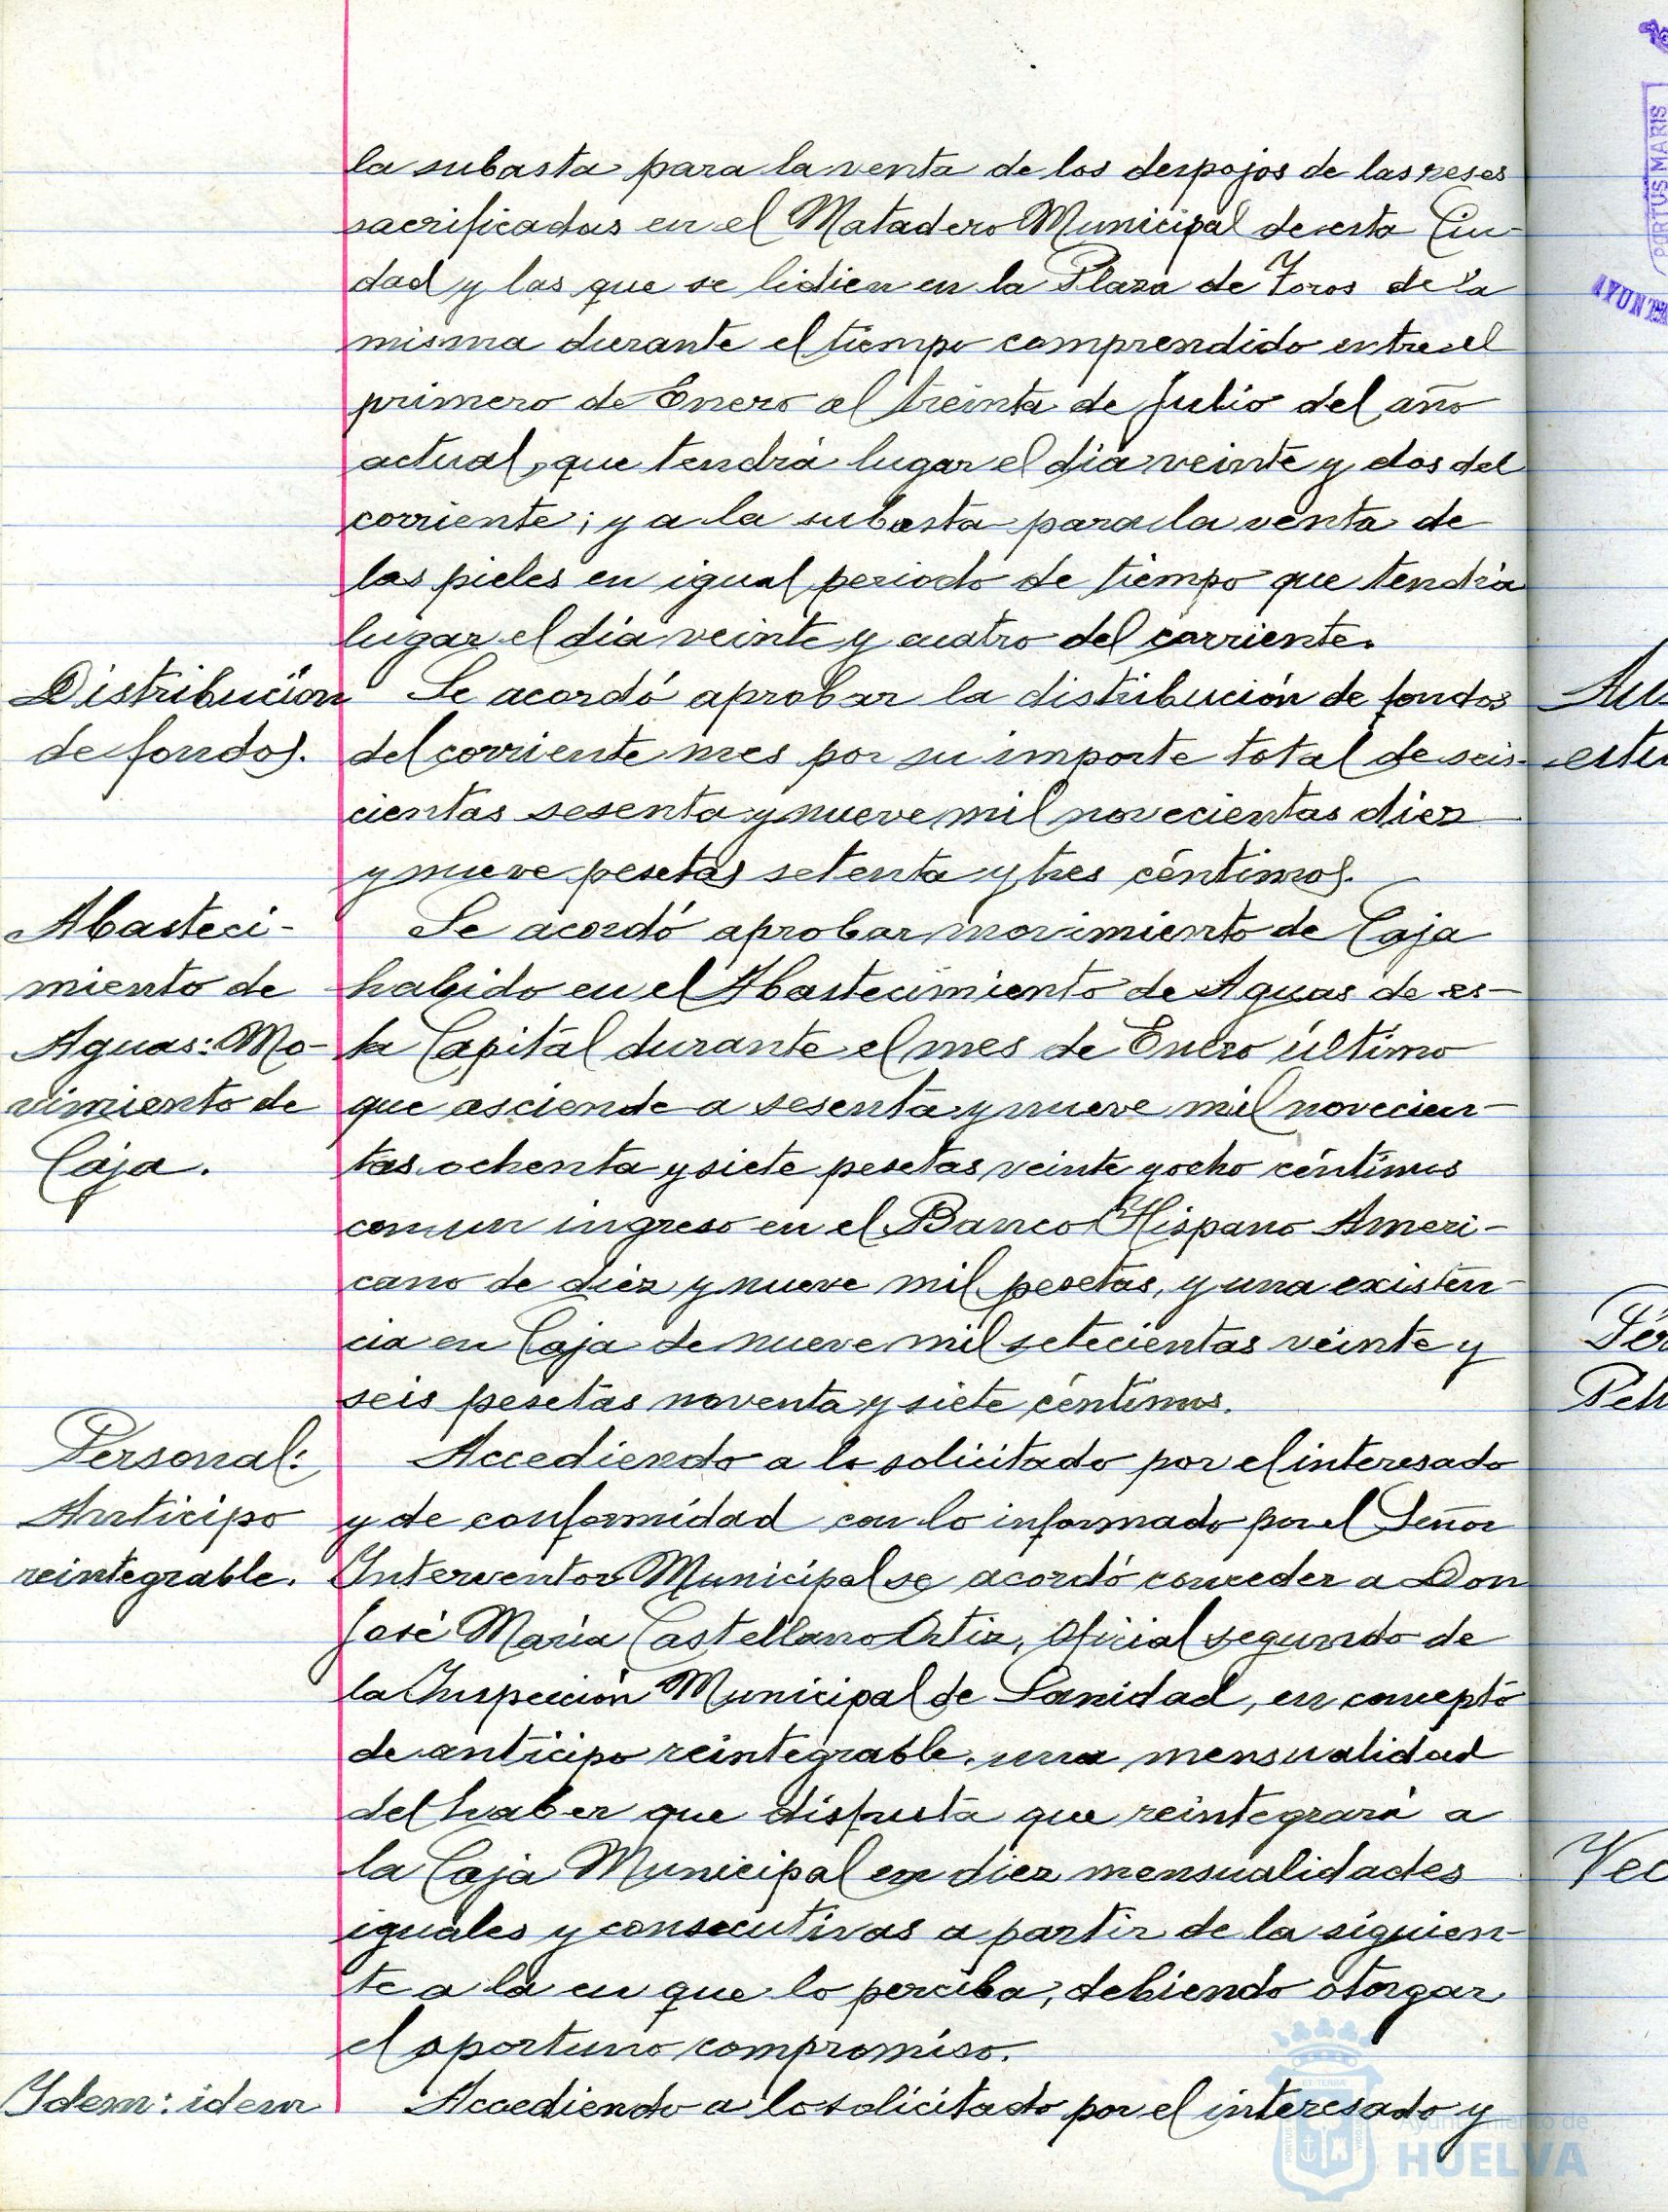 la subasta para la venta de los despojos de las reses
sacrificadas en el Matadero Municipal de esta Ciu-
dad y las que se lidien en la Plaza de Toros de la
misma durante el tiempo comprendido entre el
primero de Enero al treinta de Julio del año
actual, que tendrá lugar el día veinte y dos del
corriente; y a la subasta para la venta de
las pieles en igual periodo de tiempo que tendrá
lugar el día veinte y cuatro del corriente.
Distribución
de fondos.
Se acordó aprobar la distribución de fondos
del corriente mes por su importe total de seis-
cientas sesenta y nueve mil novecientas diez
y nueve pesetas setenta y tres céntimos.
Abasteci-
miento de
Aguas: Mo-
vimiento de
Caja.
Se acordó aprobar movimiento de Caja
habido en el Abastecimiento de Aguas de es-
ta Capital durante el mes de Enero último
que asciende a sesenta y nueve mil novecien-
tas ochenta y siete pesetas veinte y ocho céntimos
con un ingreso en el Banco Hispano Ameri-
cano de diez y nueve mil pesetas, y una existen-
cia en Caja de nueve mil setecientas veinte y
seis pesetas noventa y siete céntimos.
Personal:
Anticipo
reintegrable.
Accediendo a lo solicitado por el interesado
y de conformidad con lo informado por el Señor
Interventor Municipal se acordó conceder a Don
José María Castellano Ortiz, Oficial segundo de
la Inspección Municipal de Sanidad, en concepto
de anticipo reintegrable, una mensualidad
del haber que disfruta que reintegrará a
la Caja Municipal en diez mensualidades
iguales y consecutivas a partir de la siguien-
te a la en que lo perciba, debiendo otorgar
el oportuno compromiso.
Idem: idem
Accediendo a lo solicitado por el interesado y
PORTUS MARIS
AYUNT
Au-
estu
Per
Peti
Vec
Ayuntamiento de
HUELVA